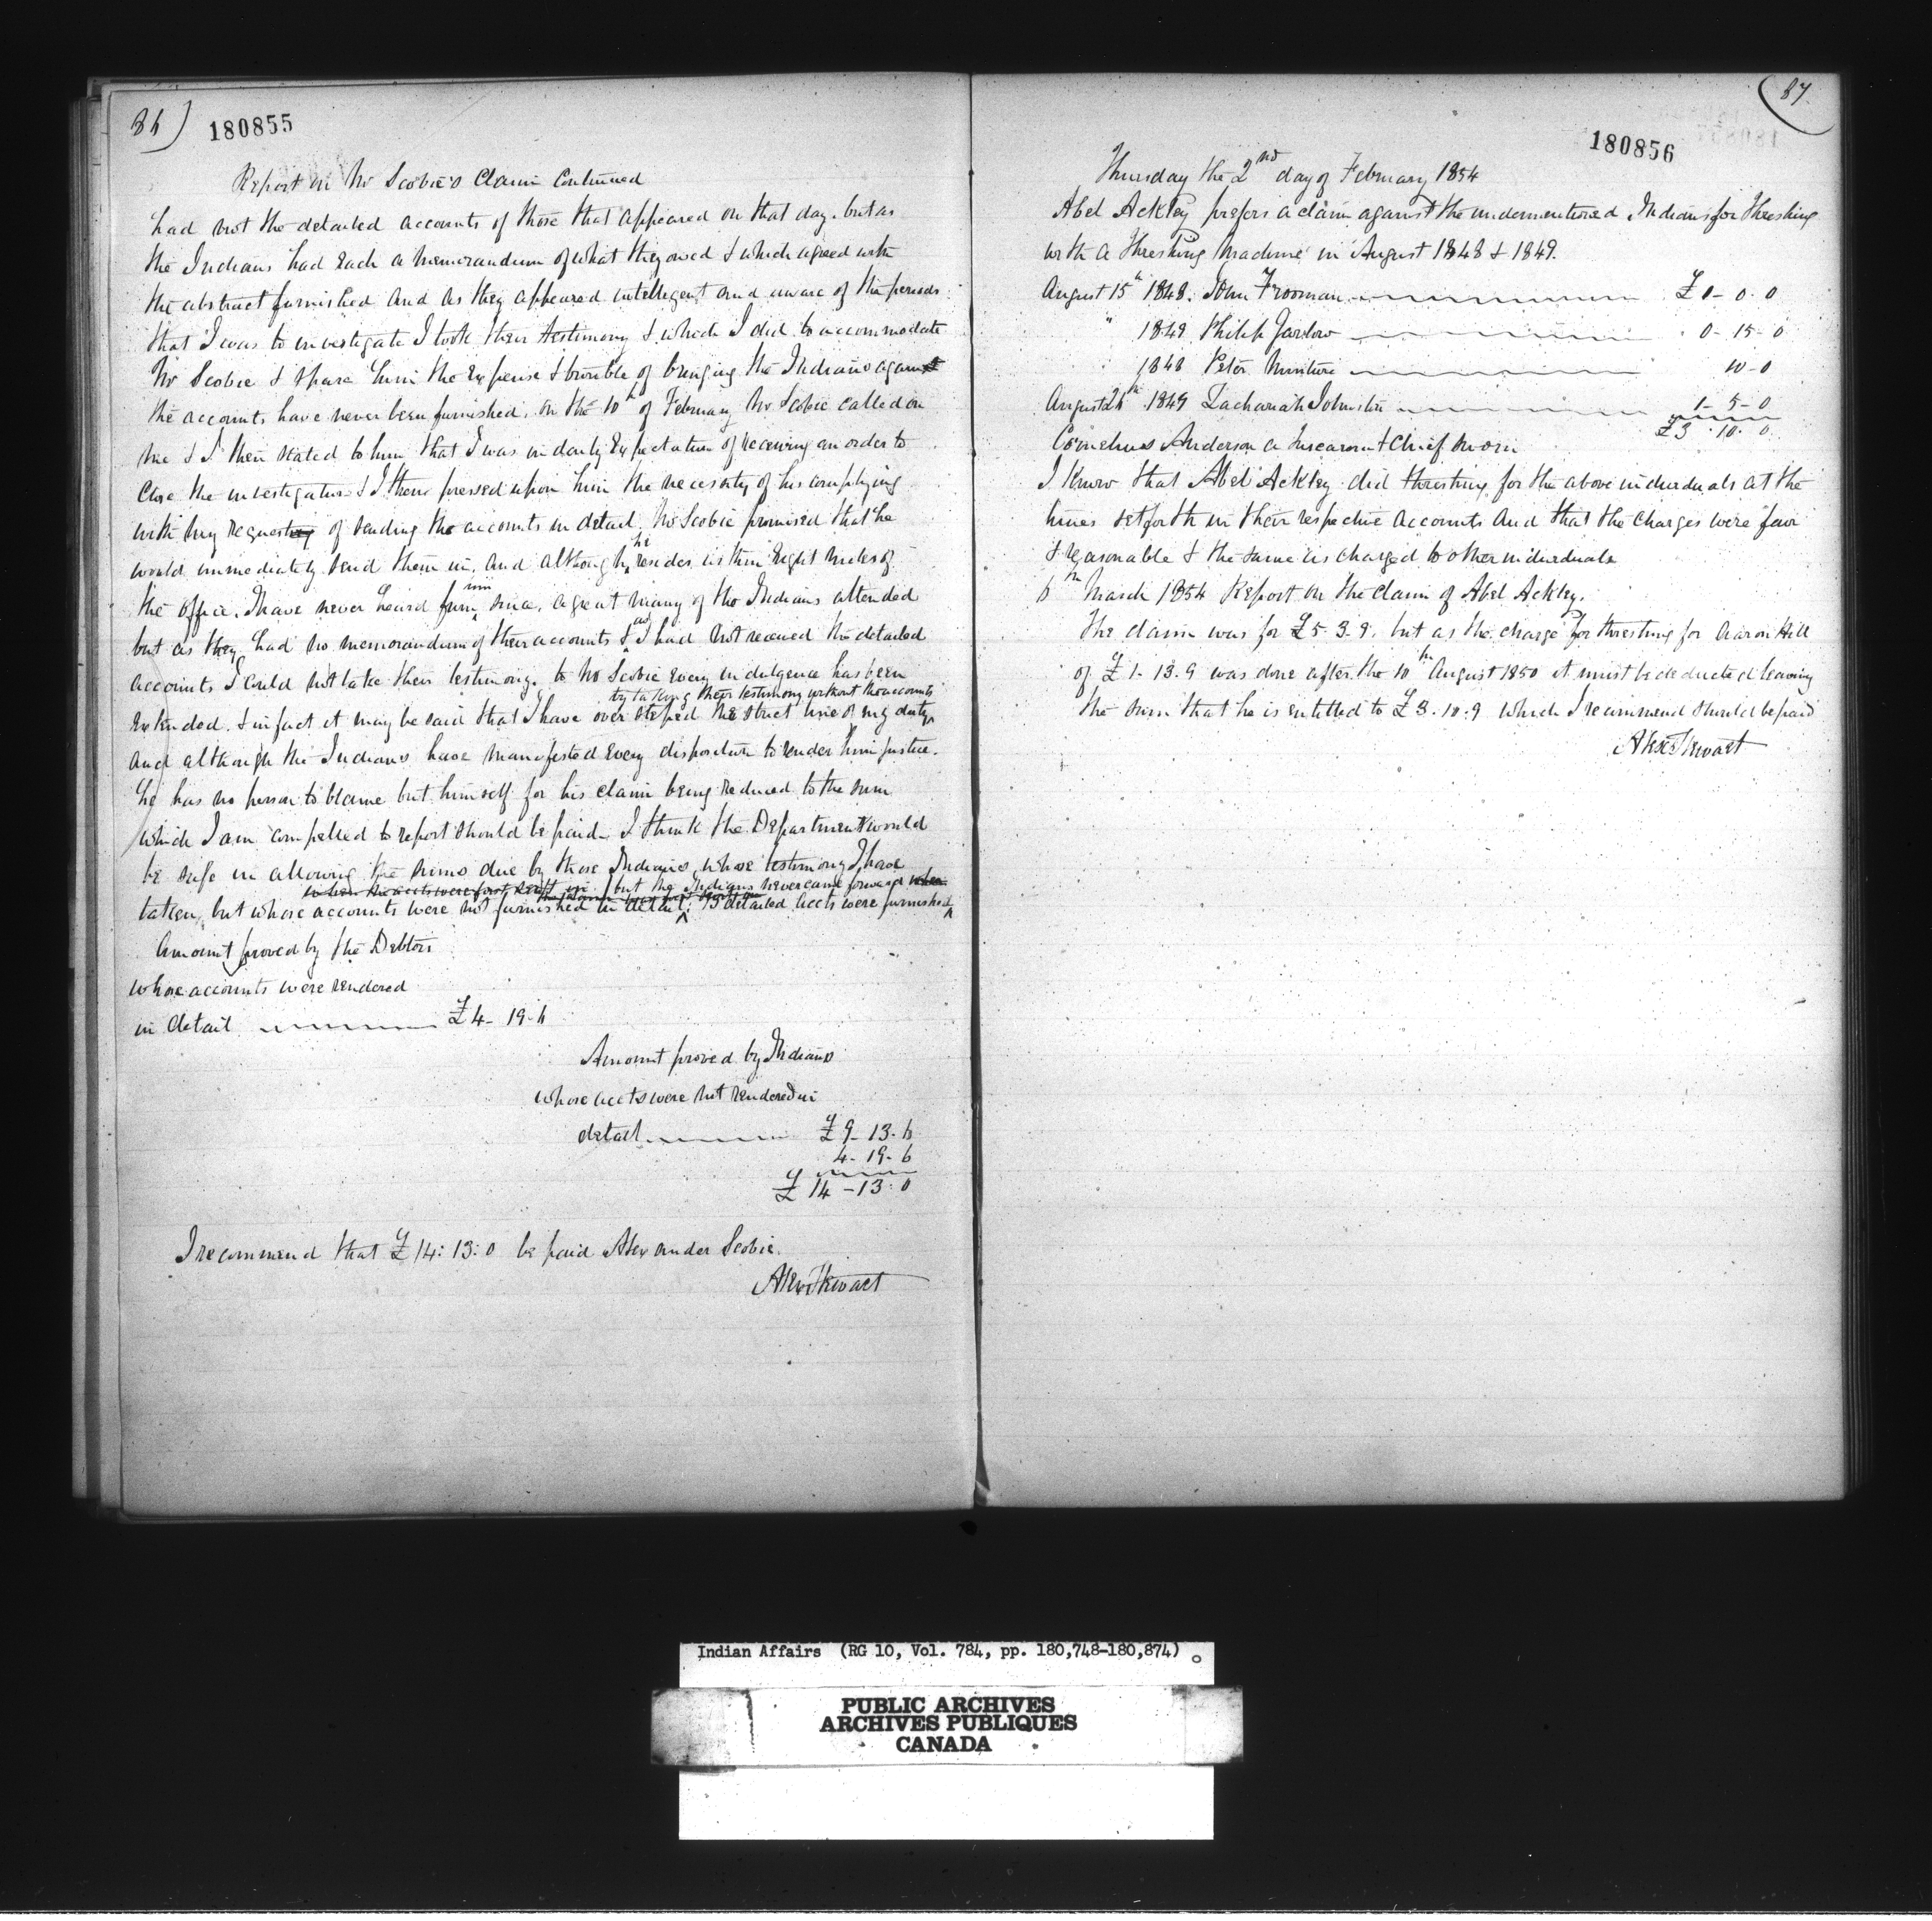 86)
180855
Report on Mr Scobie's Claim Continued
had not the detailed accounts of those that appeared on that day. but as
the Indians had each a memorandum of what they owed & which agreed with
the abstract furnished and as they appeared intelligent and aware of the periods
that I was to investigate I took their testimony & which I did to accommodate
Mr Scobie & spare him the expense & trouble of bringing the Indians again
the accounts have never been furnished. on the 10th of February Mr Scobie called on
me & I then stated to him that I was in daily expectation of receiving an order to
close the investigation & I then pressed upon him the necessity of his complying
with my request of sending the accounts in detail. Mr Scobie promised that he
would immediately send them in, and although he resides within eight miles of
the office. I have never heard from him since. a great many of the Indians attended
but as they had no memorandum of their accounts & as I had not received the detailed
accounts I could not take their testimony. to Mr Scobie every indulgence has been
by taking their testimony without the accounts
extended. & in fact it may be said that I have over steped the strict line of my duty
and although the Indians have manifested every disposition to render him justice.
he has no person to blame but himself for his claim being reduced to the sum
which I am compelled to report should be paid - I think the Department would
be safe in allowing the sums due by those Indians, whose testimony I have
when the accts were first sent in. but the Indians never came forward when
taken, but whose accounts were not furnished in detail. 13 detailed accts were furnished
Amount proved by the Debtors
whose accounts were rendered
in detail £4 - 19 - 6
Amount proved by Indians
whose accts were not rendered in
detail £9 - 13 - 6
4 - 19 - 6
£14 - 13 - 0
I recommend that £14: 13: 0 be paid Alexander Scobie.
Alex Stewart
(87.
180856
Thursday the 2nd day of February 1854
Abel Ackley prefers a claim against the undermentioned Indians for threshing
with a threshing machine in August 1848 & 1849.
August 15th 1848. John Frooman £1 - 0 - 0
" 1849 Philip Jarlow 0 - 15 - 0
1848 Peter 10 - 0
August 26th 1849 Zachariah Johnston 1 - 5 - 0
£3 . 10 . 0
Cornelius Anderson a Tuscarora Chief sworn
I know that Abel Ackley did threshing for the above individuals at the
times set forth in their respective accounts and that the charges were fair
& reasonable & the same as charged to other individuals
6th March 1854 Report on the claim of Abel Ackley.
The claim was for £5 - 3 - 9. but as the charge for threshing for Aaron Hill
of £1 - 13 . 9 was done after the 10th August 1850 it must be deducted leaving
the sum that he is entitled to £3 . 10 . 9 which I recommend should be paid
Alex Stewart
Indian Affairs (RG 10, Vol. 784, pp. 180,748-180,874)
PUBLIC ARCHIVES
ARCHIVES PUBLIQUES
CANADA